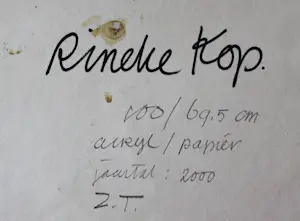 Rineke Kop.
100/69.5 cm
acryl/papiér
jaartal: 2000
Z.T.